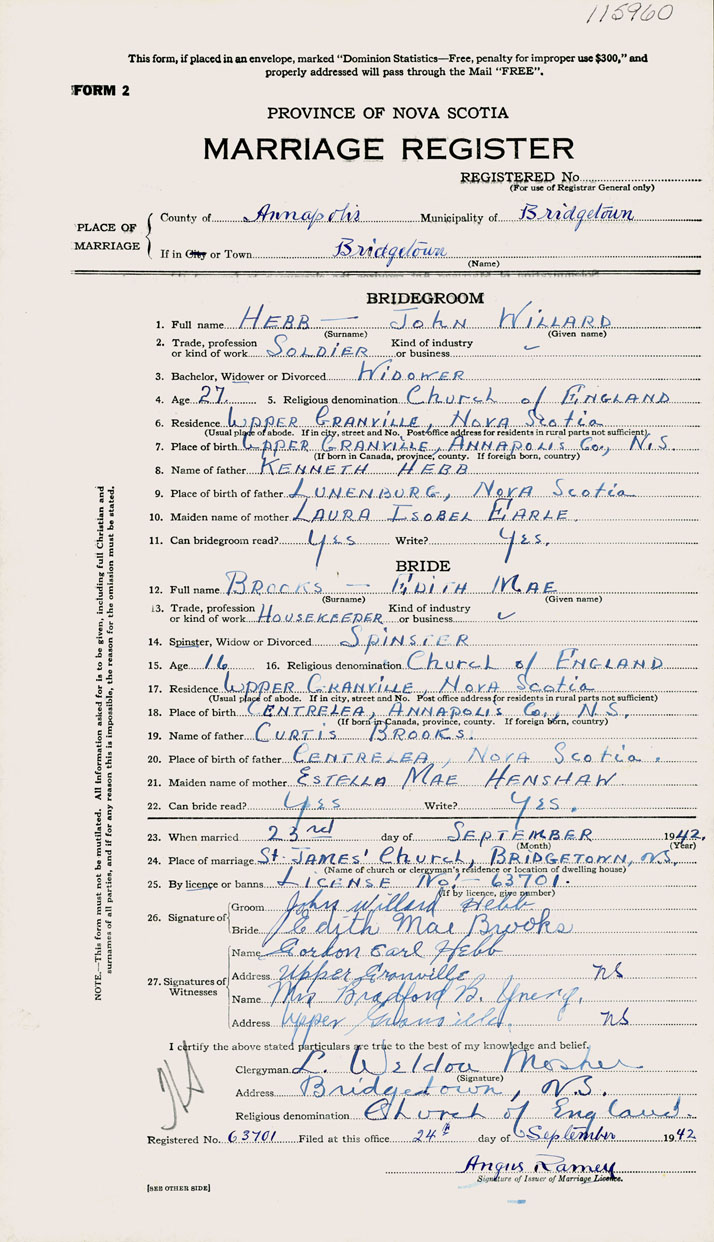 115960
This form, if placed in an envelope, marked "Dominion Statistics—Free, penalty for improper use $300," and
properly addressed will pass through the Mail "FREE".
FORM 2
PROVINCE OF NOVA SCOTIA
MARRIAGE REGISTER
REGISTERED No
(For use of Registrar General only)
PLACE OF MARRIAGE
County of Annapolis Municipality of Bridgetown
If in City or Town Bridgetown
(Name)
BRIDEGROOM
1. Full name HEBB — JOHN WILLARD
(Surname) (Given name)
2. Trade, profession or kind of work SOLDIER Kind of industry or business
3. Bachelor, Widower or Divorced WIDOWER
4. Age 27. 5. Religious denomination CHURCH of ENGLAND
6. Residence UPPER GRANVILLE, NOVA SCOTIA
(Usual place of abode. If in city, street and No. Post office address for residents in rural parts not sufficient).
7. Place of birth UPPER GRANVILLE, ANNAPOLIS Co., N.S.
(If born in Canada, province, county. If foreign born, country)
8. Name of father KENNETH HEBB
9. Place of birth of father LUNENBURG, NOVA SCOTIA
10. Maiden name of mother LAURA ISOBEL EARLE.
11. Can bridegroom read? YES Write? YES.
BRIDE
12. Full name BROOKS — EDITH MAE
(Surname) (Given name)
13. Trade, profession or kind of work HOUSEKEEPER Kind of industry or business
14. Spinster, Widow or Divorced SPINSTER
15. Age 16 16. Religious denomination CHURCH of ENGLAND
17. Residence UPPER GRANVILLE, NOVA SCOTIA
(Usual place of abode. If in city, street and No. Post office address for residents in rural parts not sufficient)
18. Place of birth CENTRELEA, ANNAPOLIS Co., N.S.
(If born in Canada, province, county. If foreign born, country)
19. Name of father CURTIS BROOKS.
20. Place of birth of father CENTRELEA, NOVA SCOTIA.
21. Maiden name of mother ESTELLA MAE HENSHAW
22. Can bride read? YES Write? YES.
23. When married 23rd day of SEPTEMBER 1942.
(Month) (Year)
24. Place of marriage St. JAMES' CHURCH, BRIDGETOWN, N.S.
(Name of church or clergyman's residence or location of dwelling house)
25. By licence or banns LICENSE No. — 63701.
(If by licence, give number)
26. Signature of
Groom John Willard Hebb
Bride Edith Mae Brooks
27. Signatures of Witnesses
Name Gordon Earl Hebb
Address Upper Granville NS
Name Mrs Bradford B.
Address Upper Granville. NS
I certify the above stated particulars are true to the best of my knowledge and belief.
Clergyman L. Weldon Mosher
(Signature)
Address Bridgetown, N.S.
Religious denomination Church of England.
Registered No. 63701 Filed at this office 24th day of September 1942
Angus Ramey
Signature of Issuer of Marriage Licence.
[SEE OTHER SIDE]
NOTE.—This form must not be mutilated. All Information asked for is to be given, including full Christian and
surnames of all parties, and if for any reason this is impossible, the reason for the omission must be stated.